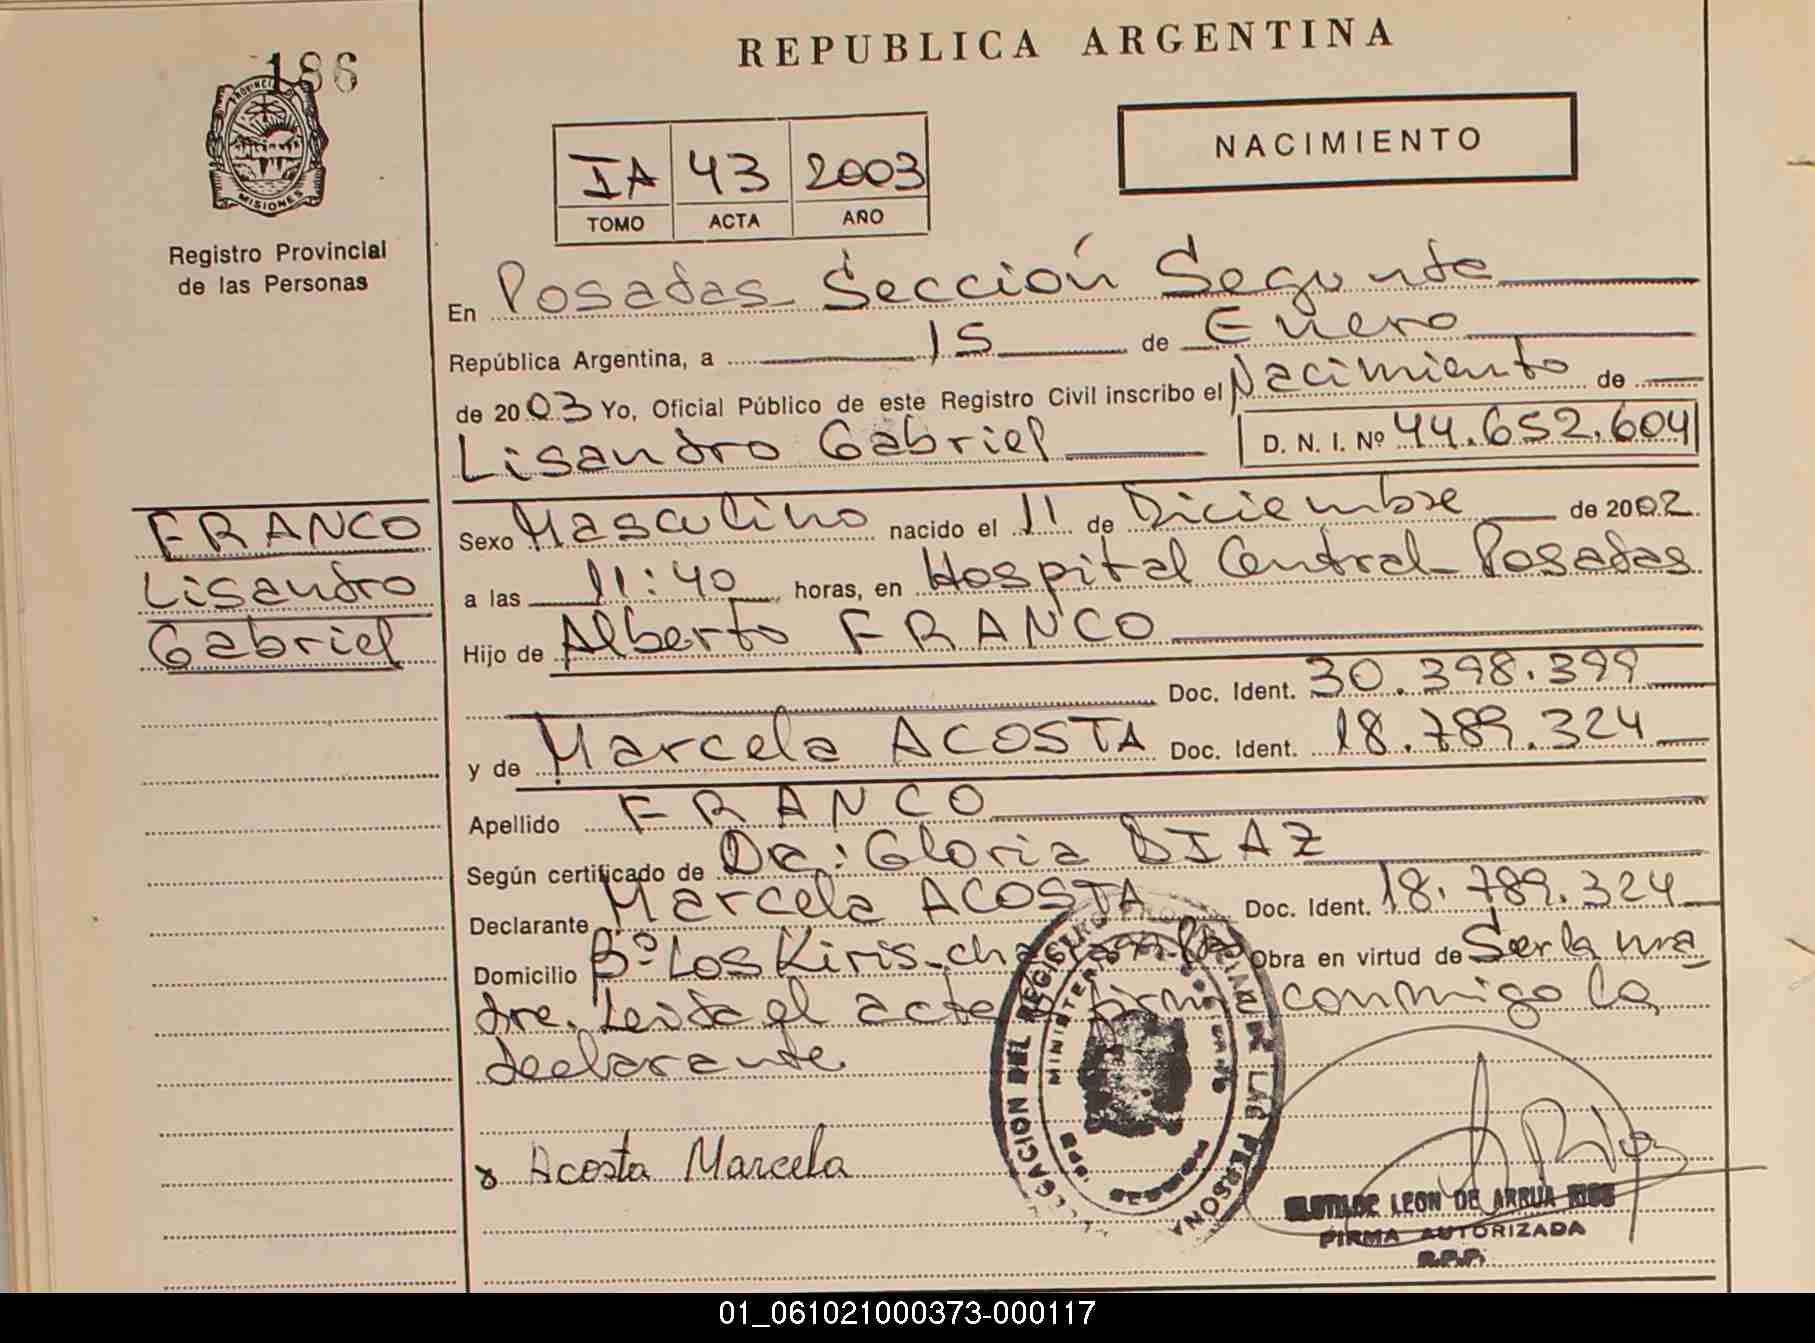 186
REPUBLICA ARGENTINA
PROVINCIA
MISIONES
Registro Provincial
de las Personas
IA 43 2003
TOMO ACTA AÑO
NACIMIENTO
En Posadas Sección Segunda
República Argentina, a 15 de Enero
de 2003 Yo, Oficial Público de este Registro Civil inscribo el Nacimiento de
Lisandro Gabriel D. N. I. Nº 44.652.604
FRANCO
Lisandro
Gabriel
Sexo Masculino nacido el 11 de Diciembre de 2002
a las 11:40 horas, en Hospital Central Posadas
Hijo de Alberto FRANCO
Doc. Ident. 30.398.399
y de Marcela ACOSTA Doc. Ident. 18.789.324
Apellido FRANCO
Según certificado de Dra: Gloria DIAZ
Declarante Marcela ACOSTA Doc. Ident. 18.789.324
Domicilio Bº Los Kiris Obra en virtud de Ser la ma
dre. Leida el acta firma conmigo la
declarante
x Acosta Marcela
DELEGACION DEL REGISTRO LAS PERSONAS
CLOTILDE LEON DE ARRUA RIOS
FIRMA AUTORIZADA
R.P.P.
01_061021000373-000117